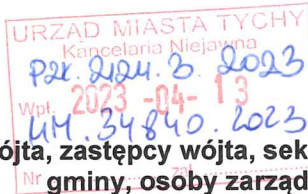 URZĄD MIASTA TYCHY
Kancelaria Niejawna
PZK. 2124. 3. 2023
Wpł. 2023 -04- 13
UM. 34840. 2023
ójta, zastępcy wójta, sek
Nr zał.
gminy, osoby zarząd